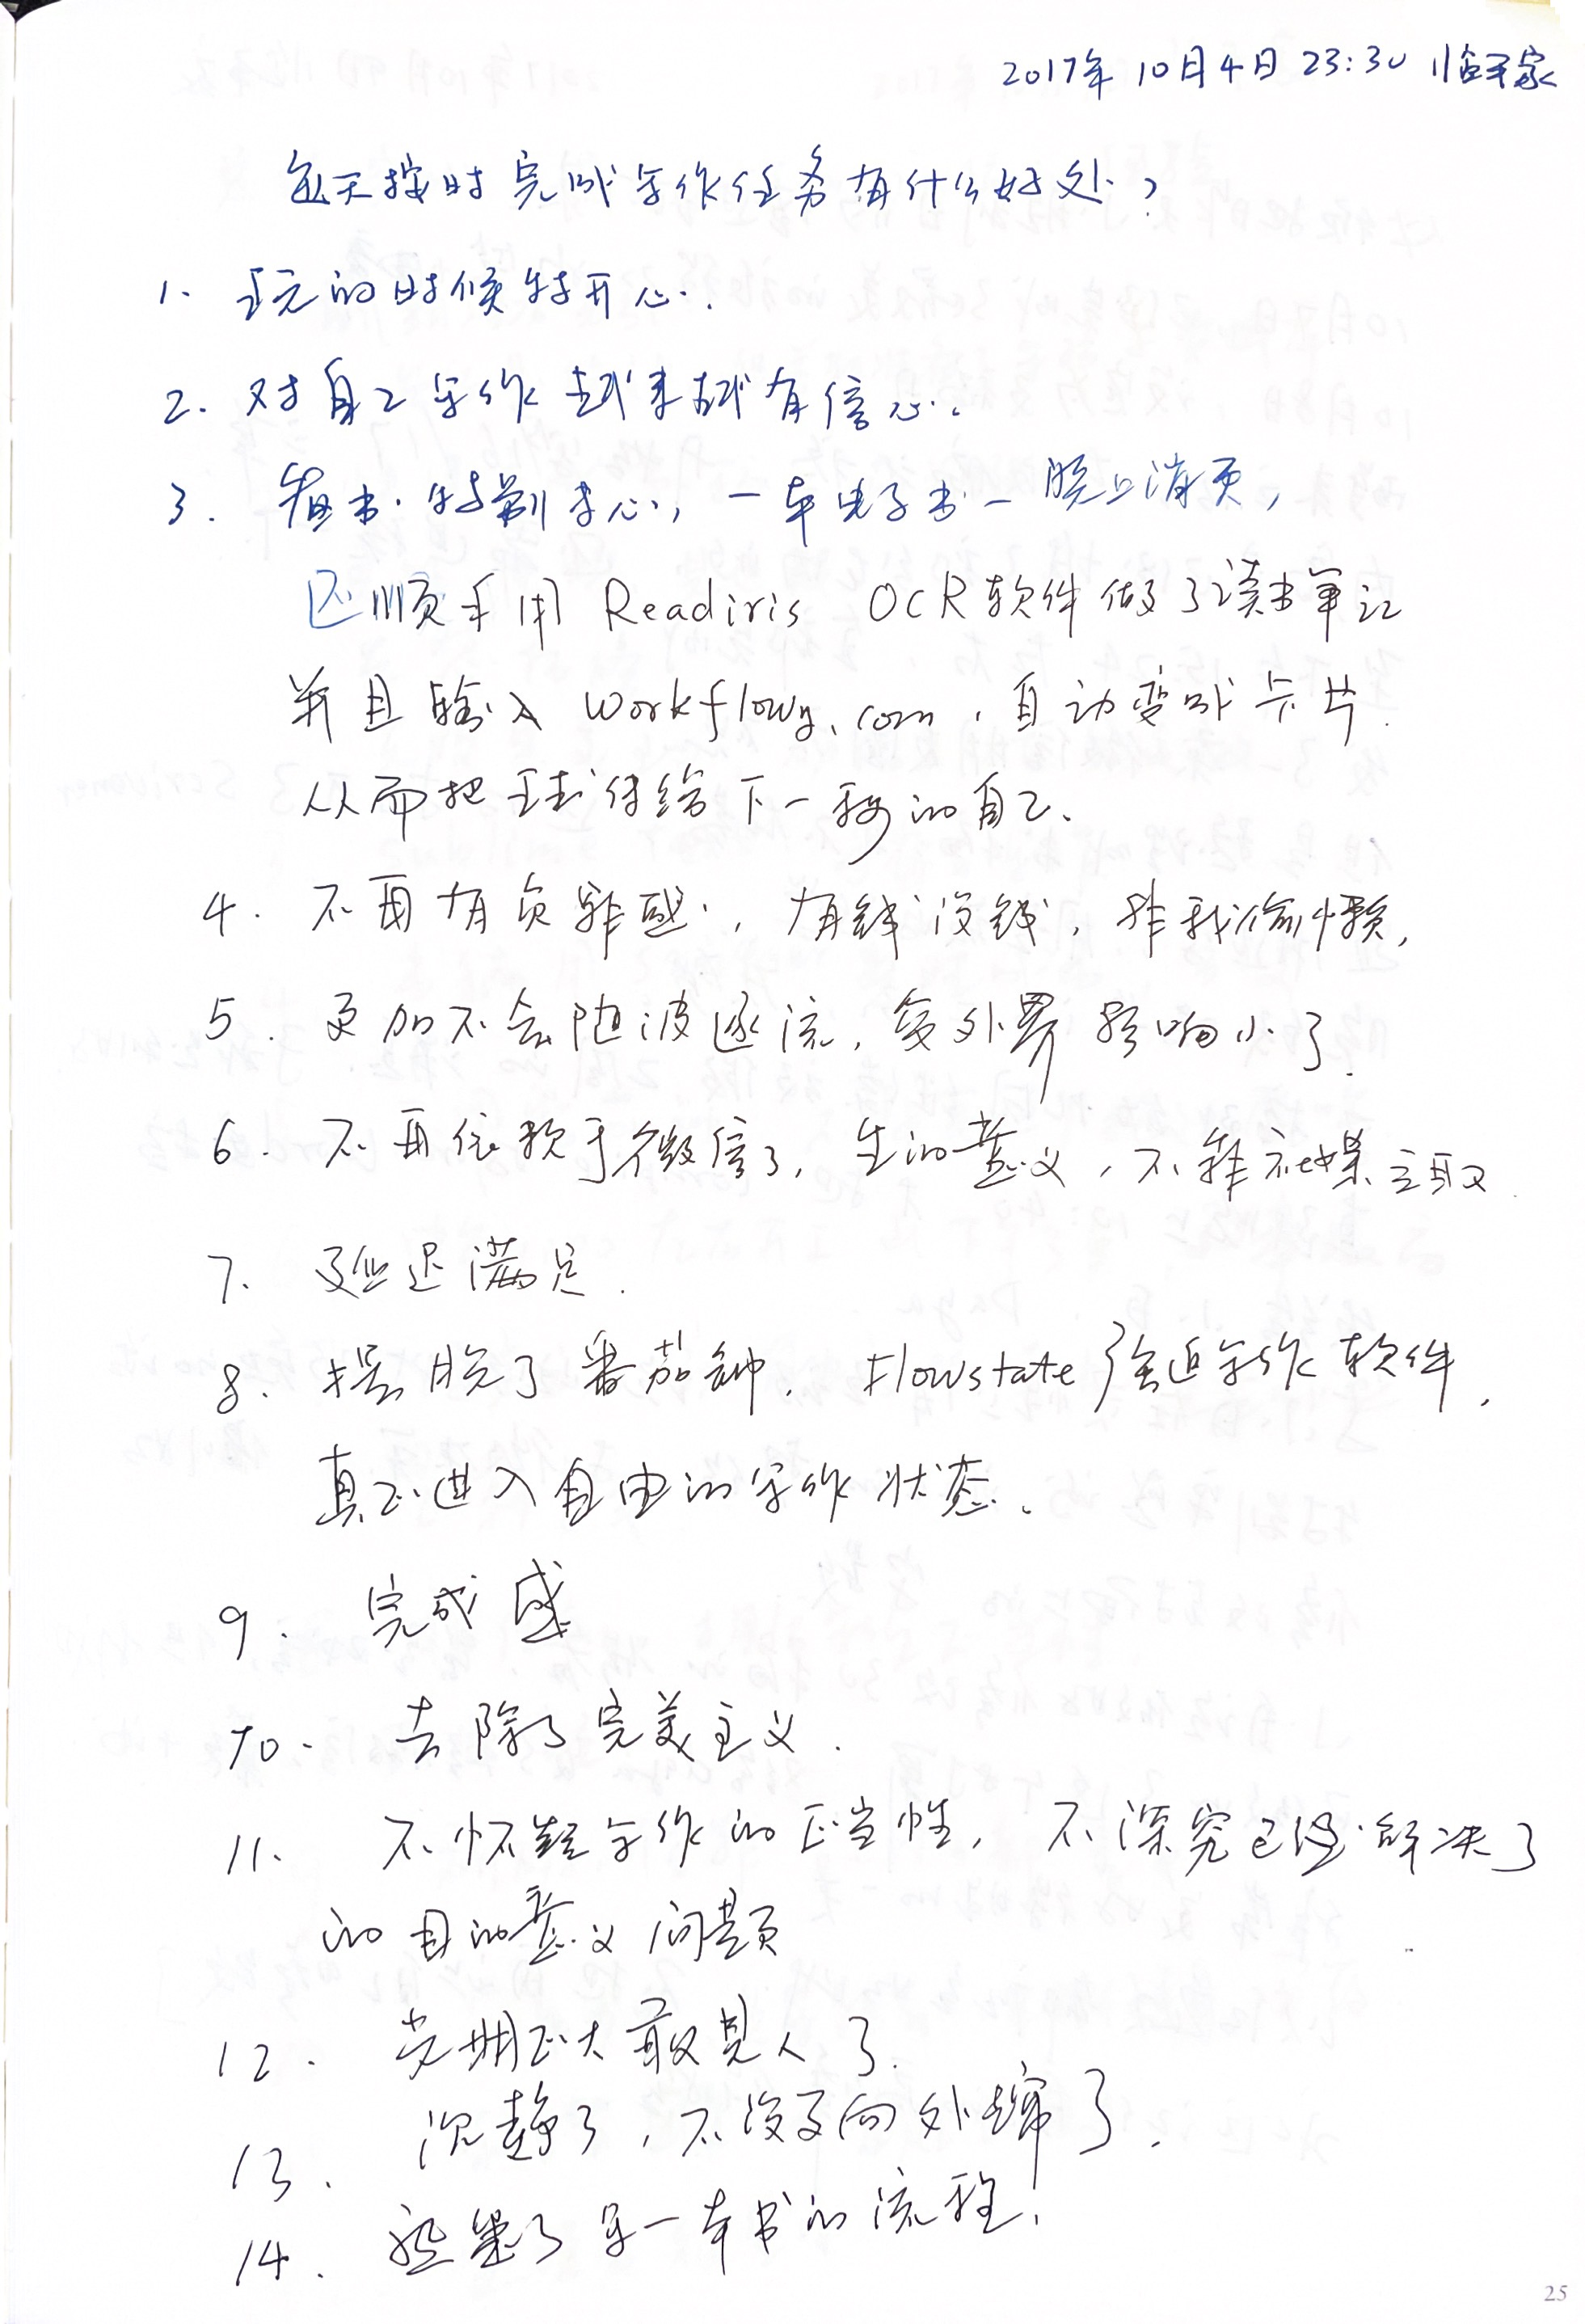 2017年10月4日 23:30 临平家
每天按时完成写作任务有什么好处？
1. 玩的时候特开心.
2. 对自己写作越来越有信心.
3. 看书特别专心，一本电子书一晚上消灭，
还顺手用 Readiris OCR软件做了读书笔记
并且输入 workflowy.com，自动变成卡片.
从而把球传给下一秒的自己、
4. 不再有负罪感，有钱没钱，非我偷懒，
5. 更加不会随波逐流，受外界影响小了.
6. 不再依赖于微信了，生的意义，不靠社媒立取.
7. 延迟满足.
8. 摆脱了番茄钟，Flowstate 强迫写作软件，
真正进入自由的写作状态、
9. 完成感
10. 去除了完美主义.
11. 不怀疑写作的正当性，不深究已经解决了
的目的意义问题
12. 光明正大敢见人了.
13. 沉静了，不没了向外蹿了.
14. 熟悉了写一本书的流程！
25